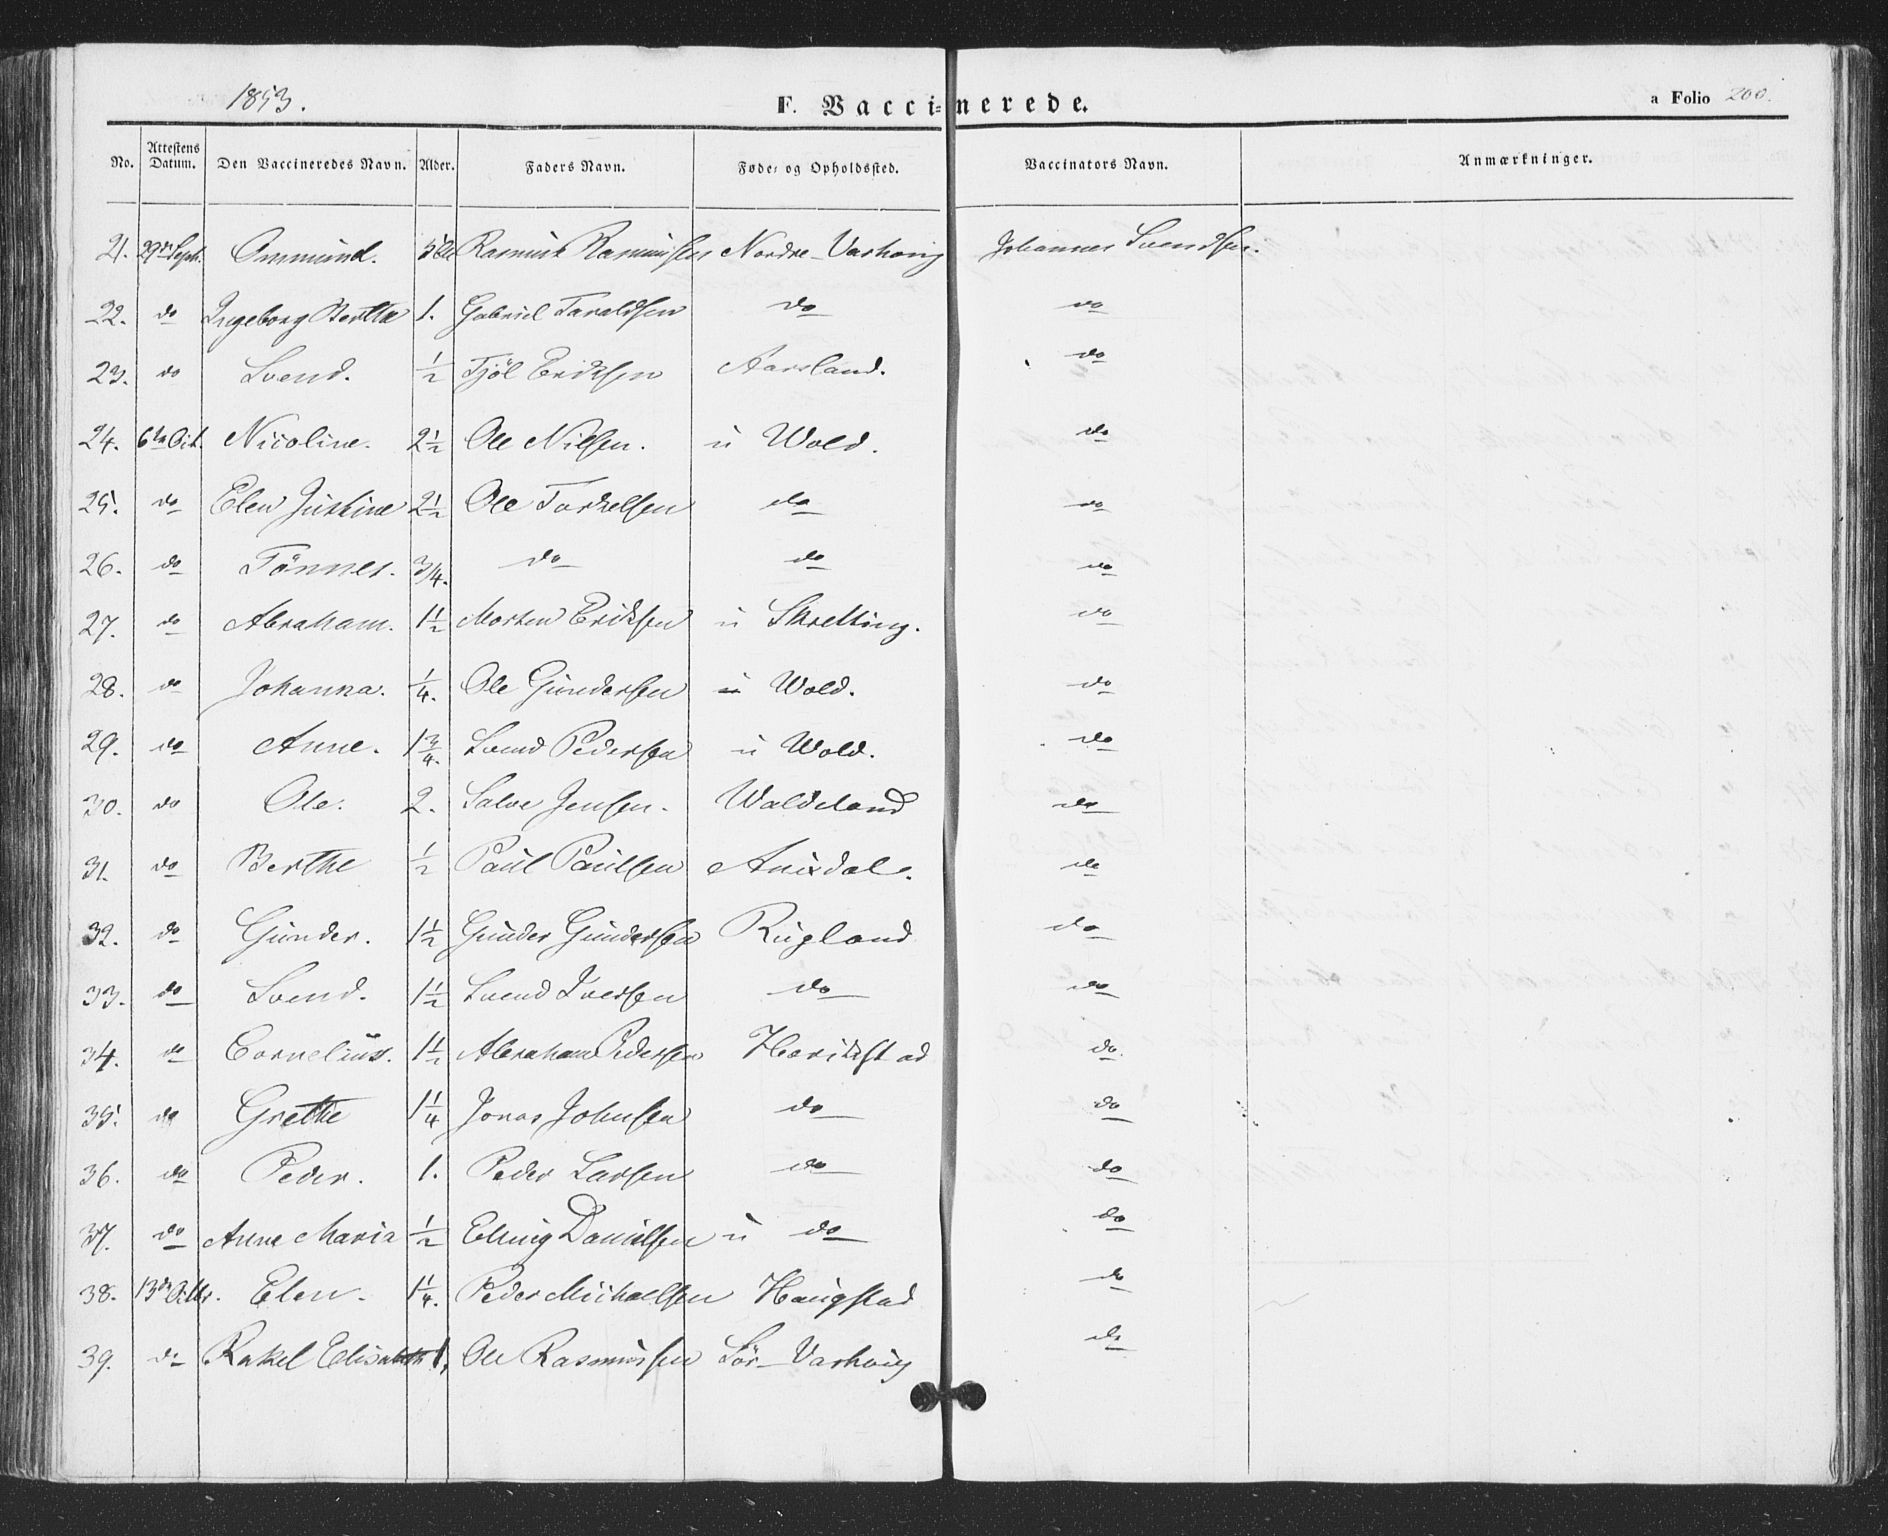 1853. F. Vaccinerede. a Folio 200.
No. Attestens Datum. Den Vaccineredes Navn. Alder. Faders Navn. Føde- og Opholdssted. Vaccinators Navn. Anmærkninger.
21. 29de Septr. Ommund. Rasmus Rasmussen Nordre-Varhoug Johannes Svendsen.
22. do Ingeborg Bertha 1. Gabriel Taraldsen do do
23. do Svend. 1/2 Tjöl Eriksen Aarsland. do
24. 6te Oct. Nicoline. 2 1/2 Ole Nilsen. u Wold. do
25. do Elen Justine 2 1/2 Ole Torkelsen do do
26. do Tönnes. 3/4. do do do
27. do Abraham. 1 1/2 Morten Eriksen u Skretting. do
28. do Johanna. 1/4. Ole Gundersen u Wold. do
29. do Anne. 1 3/4. Svend Pedersen u Wold. do
30. do Ole. 2. Salve Jensen. Waldeland do
31. do Berthe 1/2 Paul Paulsen do
32. do Gunder. 1 1/2 Gunder Gundersen Rugland do
33. do Svend. 1 1/2 Svend Iversen do do
34. do Cornelius. 1 1/2 Abraham Pedersen do
35. do Grethe 1 1/4 Jonas Johnsen do do
36. do Peder. 1. Peder Larsen do do
37. do Anne Maria 1/2 Elling Danielsen u do do
38. 13de Octbr. Elen. 1 1/4. Peder Michaelsen Haugstad do
39. do Rakel Elisabeth 1. Ole Rasmussen Sör-Varhoug do